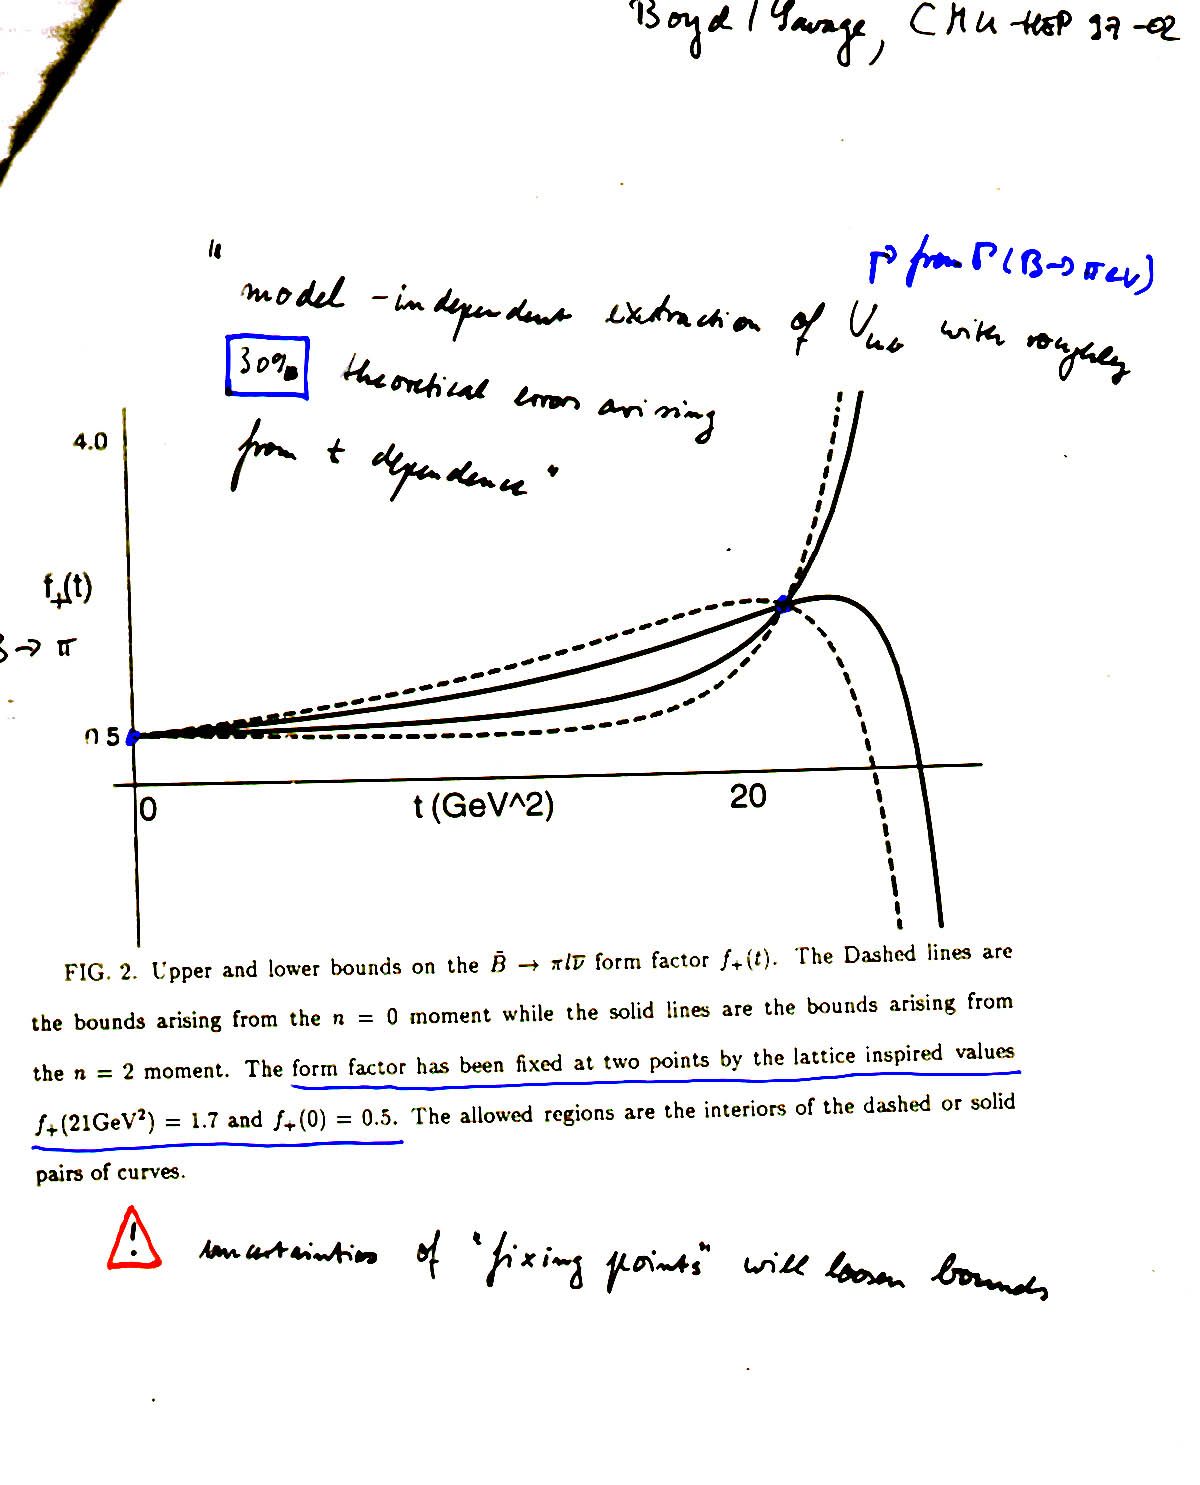 Boyd / Savage, CMU-HEP 97-02
"
from Γ(B→π e ν)
model-independent extraction of Vub with roughly
30% theoretical errors arising
from t dependence"
4.0
f+(t)
B → π
0.5
0
t (GeV^2)
20
FIG. 2. Upper and lower bounds on the B̄ → πlν̄ form factor f+(t). The Dashed lines are
the bounds arising from the n = 0 moment while the solid lines are the bounds arising from
the n = 2 moment. The form factor has been fixed at two points by the lattice inspired values
f+(21GeV²) = 1.7 and f+(0) = 0.5. The allowed regions are the interiors of the dashed or solid
pairs of curves.
! uncertainties of "fixing points" will loosen bounds